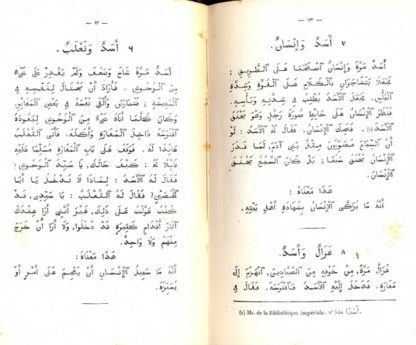 — ١٢ —
٦ أَسَدٌ وَثَعْلَبٌ.
أَسَدٌ مَرَّةً شَاخَ وَضَعُفَ وَلَمْ يَقْدِرْ عَلَى شَيْءٍ
مِنَ الْوُحُوشِ. فَأَرَادَ أَنْ يَحْتَالَ لِنَفْسِهِ فِي
الْمَعِيشَةِ: فَتَمَارَضَ وَأَلْقَى نَفْسَهُ فِي بَعْضِ الْمَغَايِرِ.
وَكَانَ كُلَّمَا أَتَاهُ شَيْءٌ مِنَ الْوُحُوشِ لِيَعُودَهُ
افْتَرَسَهُ دَاخِلَ الْمَغَارَةِ وَأَكَلَهُ. فَأَتَى الثَّعْلَبُ
عَائِدًا لَهُ: فَوَقَفَ عَلَى بَابِ الْمَغَارَةِ مُسَلِّمًا عَلَيْهِ
قَائِلًا لَهُ: كَيْفَ حَالُكَ، يَا سَيِّدَ الْوُحُوشِ؟
فَقَالَ لَهُ الْأَسَدُ: لِمَاذَا لَا تَدْخُلُ يَا أَبَا
الْحُصَيْنِ؟ فَقَالَ لَهُ الثَّعْلَبُ: يَا سَيِّدِي، قَدْ
كُنْتُ عَوَّلْتُ عَلَى ذٰلِكَ، غَيْرَ أَنَّنِي أَرَى عِنْدَكَ
آثَارَ أَقْدَامٍ كَثِيرَةٍ قَدْ دَخَلُوا، وَلَا أَرَى أَنْ خَرَجَ
مِنْهُمْ وَلَا وَاحِدٌ.
هٰذَا مَعْنَاهُ:
أَنَّهُ مَا سَبِيلُ الْإِنْسَانِ أَنْ يَهْجُمَ عَلَى أَمْرٍ أَوْ
يُمَيِّزَهُ.
— ١٣ —
٧ أَسَدٌ وَإِنْسَانٌ.
أَسَدٌ مَرَّةً وَإِنْسَانٌ اصْطَحَبَا عَلَى الطَّرِيقِ:
فَجَعَلَا يَتَشَاجَرَانِ بِالْكَلَامِ عَلَى الْقُوَّةِ وَشِدَّةِ
الْبَأْسِ. فَجَعَلَ الْأَسَدُ يُطْنِبُ فِي شِدَّتِهِ وَبَأْسِهِ.
فَنَظَرَ الْإِنْسَانُ عَلَى حَائِطٍ صُورَةَ رَجُلٍ وَهُوَ يَخْنُقُ
أَسَدًا (a). فَضَحِكَ الْإِنْسَانُ. فَقَالَ لَهُ الْأَسَدُ: لَوْ
أَنَّ السِّبَاعَ مُصَوِّرُونَ مِثْلَ بَنِي آدَمَ، لَمَا قَدَرَ
الْإِنْسَانُ يَخْنُقُ سَبُعًا: بَلْ كَانَ السَّبُعُ يَخْنُقُ
الْإِنْسَانَ.
هٰذَا مَعْنَاهُ:
أَنَّهُ مَا يُزَكَّى الْإِنْسَانُ بِشَهَادَةِ أَهْلِ بَيْتِهِ.
٨ غَزَالٌ وَأَسَدٌ.
غَزَالٌ مَرَّةً، مِنْ خَوْفِهِ مِنَ الصَّيَّادِينَ، انْهَزَمَ إِلَى
مَغَارَةٍ. فَدَخَلَ إِلَيْهِ الْأَسَدُ فَافْتَرَسَهُ. فَقَالَ فِي
(a) Ms. de la Bibliothèque impériale, n°